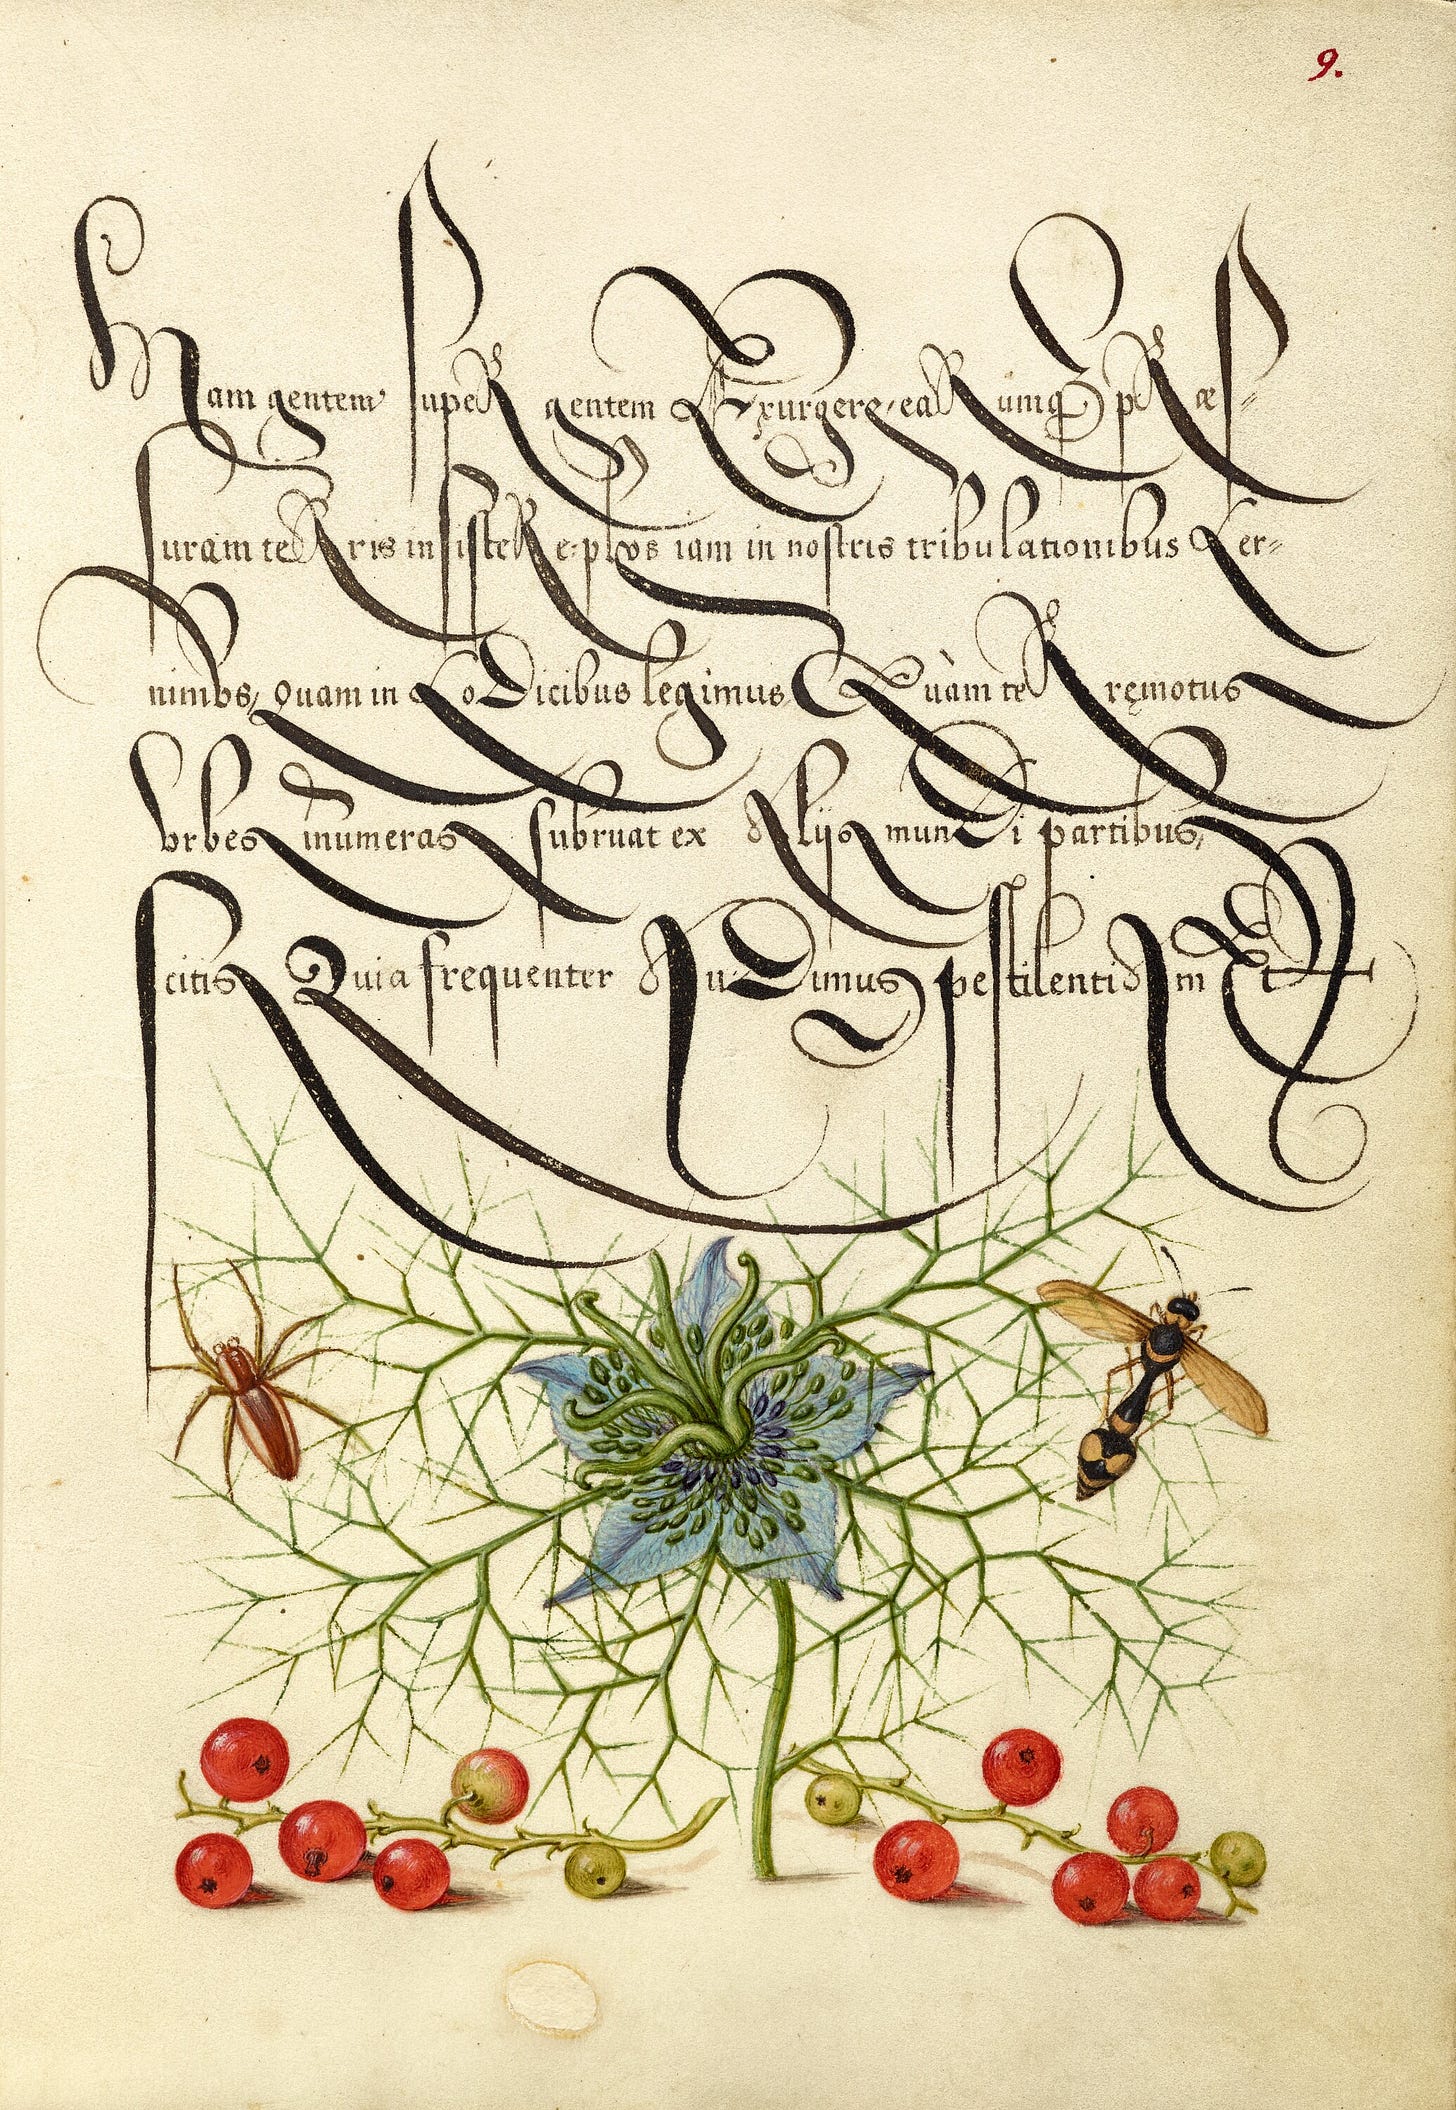 9.
Nam gentem super gentem Exurgere, earumq₃ præs=
suram terris insistere: plvs iam in nostris tribulationibus cer=
nimvs, quam in coDicibus legimus. Quàm terrę motus
vrbes innumeras subruat ex Alijs munDi partibus,
scitis Quia frequenter AuDimus pestilentiAm Et